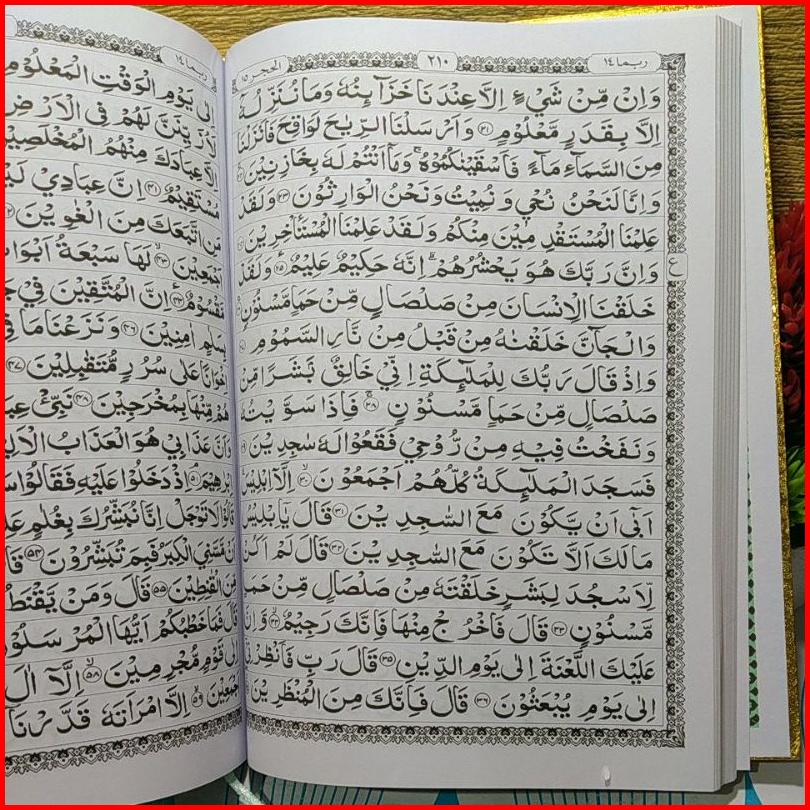 ربما ١٤
٢١٠
الحجر ١٥
وَاِنْ مِّنْ شَيْءٍ اِلَّا عِنْدَنَا خَزَآئِنُهٗ وَمَا نُنَزِّلُهٗٓ
اِلَّا بِقَدَرٍ مَّعْلُوْمٍ ٢١ وَاَرْسَلْنَا الرِّيٰحَ لَوَاقِحَ فَاَنْزَلْنَا
مِنَ السَّمَآءِ مَآءً فَاَسْقَيْنٰكُمُوْهُ وَمَآ اَنْتُمْ لَهٗ بِخَازِنِيْنَ ٢٢
وَاِنَّا لَنَحْنُ نُحْيٖ وَنُمِيْتُ وَنَحْنُ الْوَارِثُوْنَ ٢٣ وَلَقَدْ
عَلِمْنَا الْمُسْتَقْدِمِيْنَ مِنْكُمْ وَلَقَدْ عَلِمْنَا الْمُسْتَأْخِرِيْنَ ٢٤
وَاِنَّ رَبَّكَ هُوَ يَحْشُرُهُمْ اِنَّهٗ حَكِيْمٌ عَلِيْمٌ ٢٥ وَلَقَدْ
ع
خَلَقْنَا الْاِنْسَانَ مِنْ صَلْصَالٍ مِّنْ حَمَاٍ مَّسْنُوْنٍ
وَالْجَآنَّ خَلَقْنٰهُ مِنْ قَبْلُ مِنْ نَّارِ السَّمُوْمِ ٢٧
وَاِذْ قَالَ رَبُّكَ لِلْمَلٰٓئِكَةِ اِنِّيْ خَالِقٌ بَشَرًا مِّنْ
صَلْصَالٍ مِّنْ حَمَاٍ مَّسْنُوْنٍ ٢٨ فَاِذَا سَوَّيْتُهٗ
وَنَفَخْتُ فِيْهِ مِنْ رُّوْحِيْ فَقَعُوْا لَهٗ سٰجِدِيْنَ ٢٩
فَسَجَدَ الْمَلٰٓئِكَةُ كُلُّهُمْ اَجْمَعُوْنَ ٣٠ اِلَّآ اِبْلِيْسَ
اَبٰٓى اَنْ يَّكُوْنَ مَعَ السّٰجِدِيْنَ ٣١ قَالَ يٰٓاِبْلِيْسُ
مَا لَكَ اَلَّا تَكُوْنَ مَعَ السّٰجِدِيْنَ ٣٢ قَالَ لَمْ اَكُنْ
لِّاَسْجُدَ لِبَشَرٍ خَلَقْتَهٗ مِنْ صَلْصَالٍ مِّنْ حَمَاٍ
مَّسْنُوْنٍ ٣٣ قَالَ فَاخْرُجْ مِنْهَا فَاِنَّكَ رَجِيْمٌ ٣٤ وَّاِنَّ
عَلَيْكَ اللَّعْنَةَ اِلٰى يَوْمِ الدِّيْنِ ٣٥ قَالَ رَبِّ فَاَنْظِرْنِيْٓ
اِلٰى يَوْمِ يُبْعَثُوْنَ ٣٦ قَالَ فَاِنَّكَ مِنَ الْمُنْظَرِيْنَ
ربما ١٤
اِلٰى يَوْمِ الْوَقْتِ الْمَعْلُوْمِ
لَاُزَيِّنَنَّ لَهُمْ فِى الْاَرْضِ
اِلَّا عِبَادَكَ مِنْهُمُ الْمُخْلَصِيْنَ
مُسْتَقِيْمٌ ٤١ اِنَّ عِبَادِيْ
مَنِ اتَّبَعَكَ مِنَ الْغٰوِيْنَ
اَجْمَعِيْنَ ٤٣ لَهَا سَبْعَةُ
مَّقْسُوْمٌ ٤٤ اِنَّ الْمُتَّقِيْنَ فِيْ
بِسَلٰمٍ اٰمِنِيْنَ ٤٦ وَنَزَعْنَا مَا
اِخْوَانًا عَلٰى سُرُرٍ مُّتَقٰبِلِيْنَ ٤٧
هُمْ مِّنْهَا بِمُخْرَجِيْنَ ٤٨ نَبِّئْ
وَاَنَّ عَذَابِيْ هُوَ الْعَذَابُ
اِبْرٰهِيْمَ ٥١ اِذْ دَخَلُوْا عَلَيْهِ فَقَالُوْا
قَالُوْا لَا تَوْجَلْ اِنَّا نُبَشِّرُكَ بِغُلٰمٍ
اَنْ مَّسَّنِيَ الْكِبَرُ فَبِمَ تُبَشِّرُوْنَ ٥٤
مِّنَ الْقٰنِطِيْنَ ٥٥ قَالَ وَمَنْ يَّقْنَطُ
قَالَ فَمَا خَطْبُكُمْ اَيُّهَا الْمُرْسَلُوْنَ
اِلٰى قَوْمٍ مُّجْرِمِيْنَ ٥٨ اِلَّآ اٰلَ
اَجْمَعِيْنَ ٥٩ اِلَّا امْرَاَتَهٗ قَدَّرْنَآ